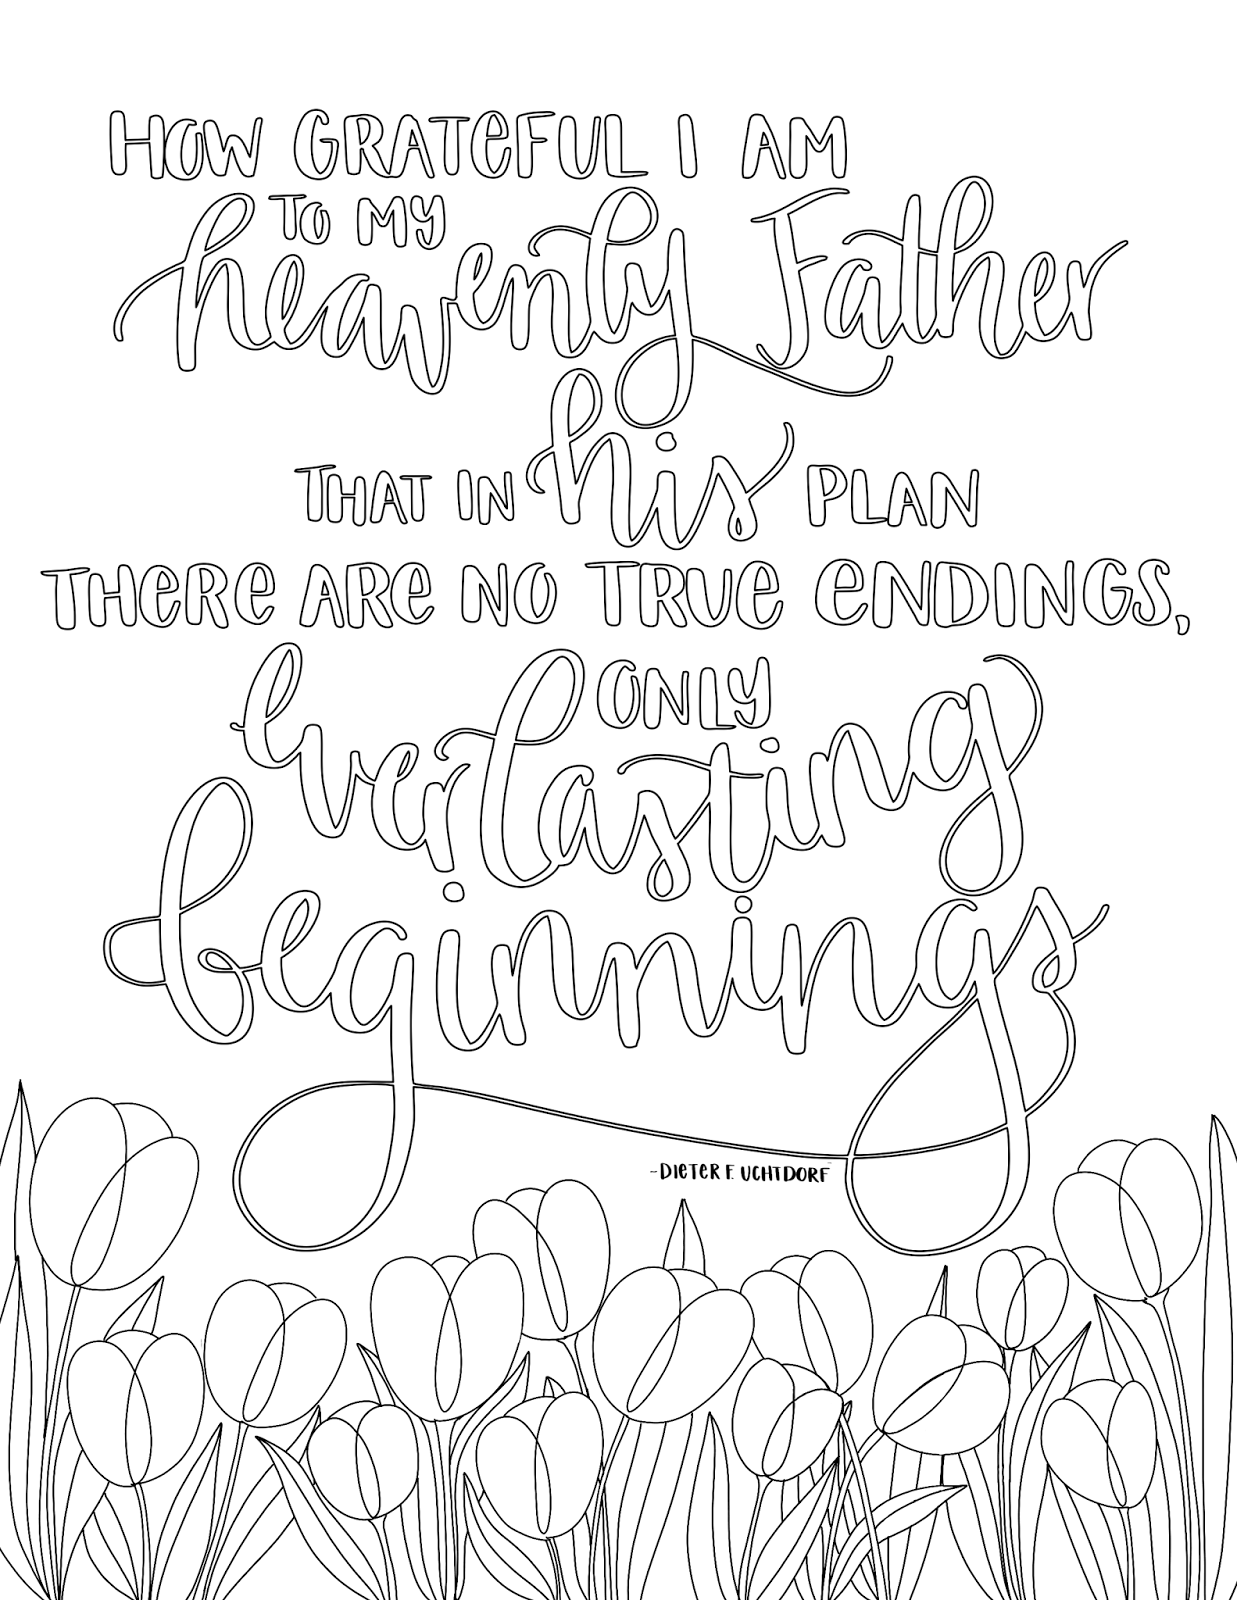 HOW GRATEFUL I AM
TO MY
heavenly Father
THAT IN his PLAN
THERE ARE NO TRUE ENDINGS,
ONLY
everlasting
beginnings
-DIETER F. UCHTDORF